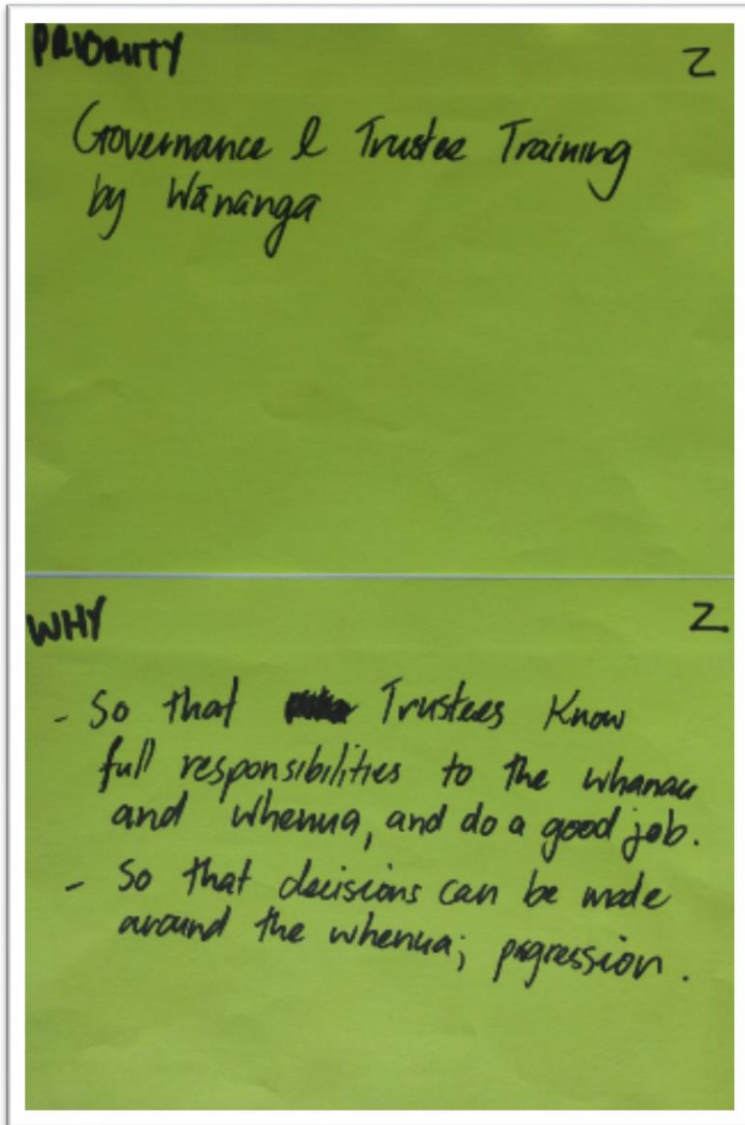 PRIORITY 2
Governance & Trustee Training
by Wānanga
WHY 2
- So that Trustees Know
full responsibilities to the whanau
and whenua, and do a good job.
- So that decisions can be made
around the whenua; progression.